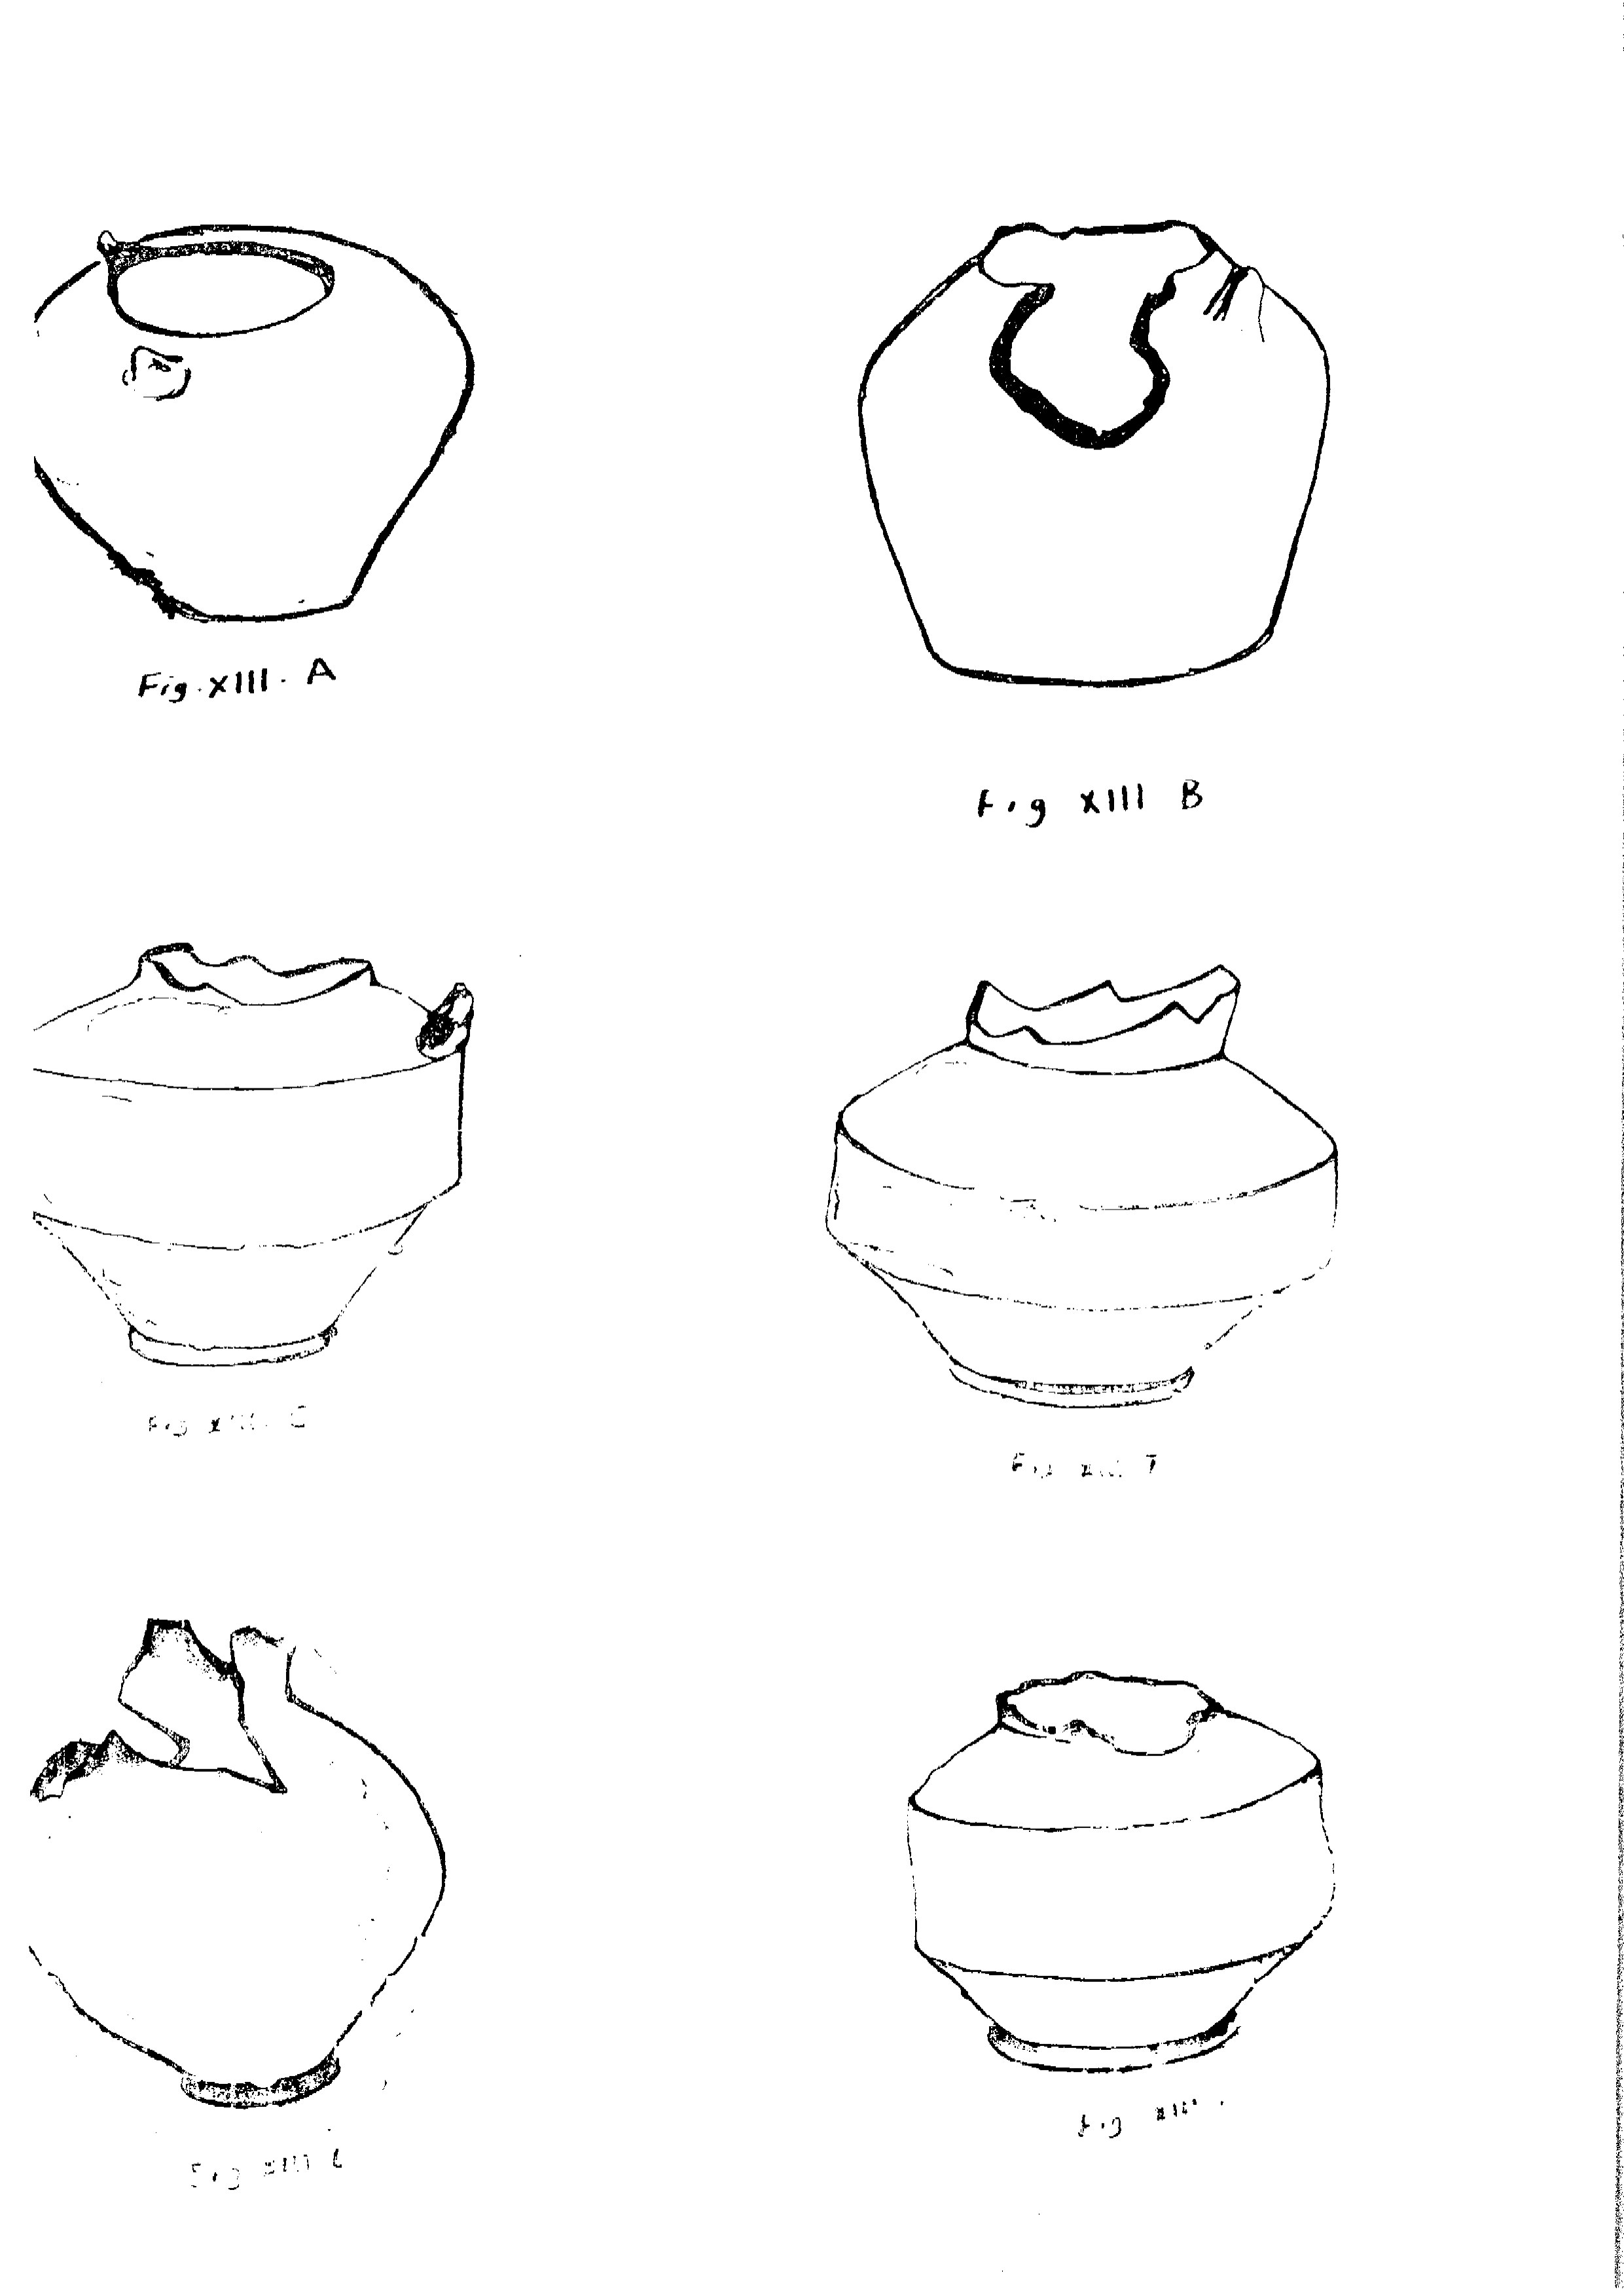 Fig. XIII. A
Fig XIII B
Fig XIII. C
Fig XIII
Fig XIII
Fig XIII